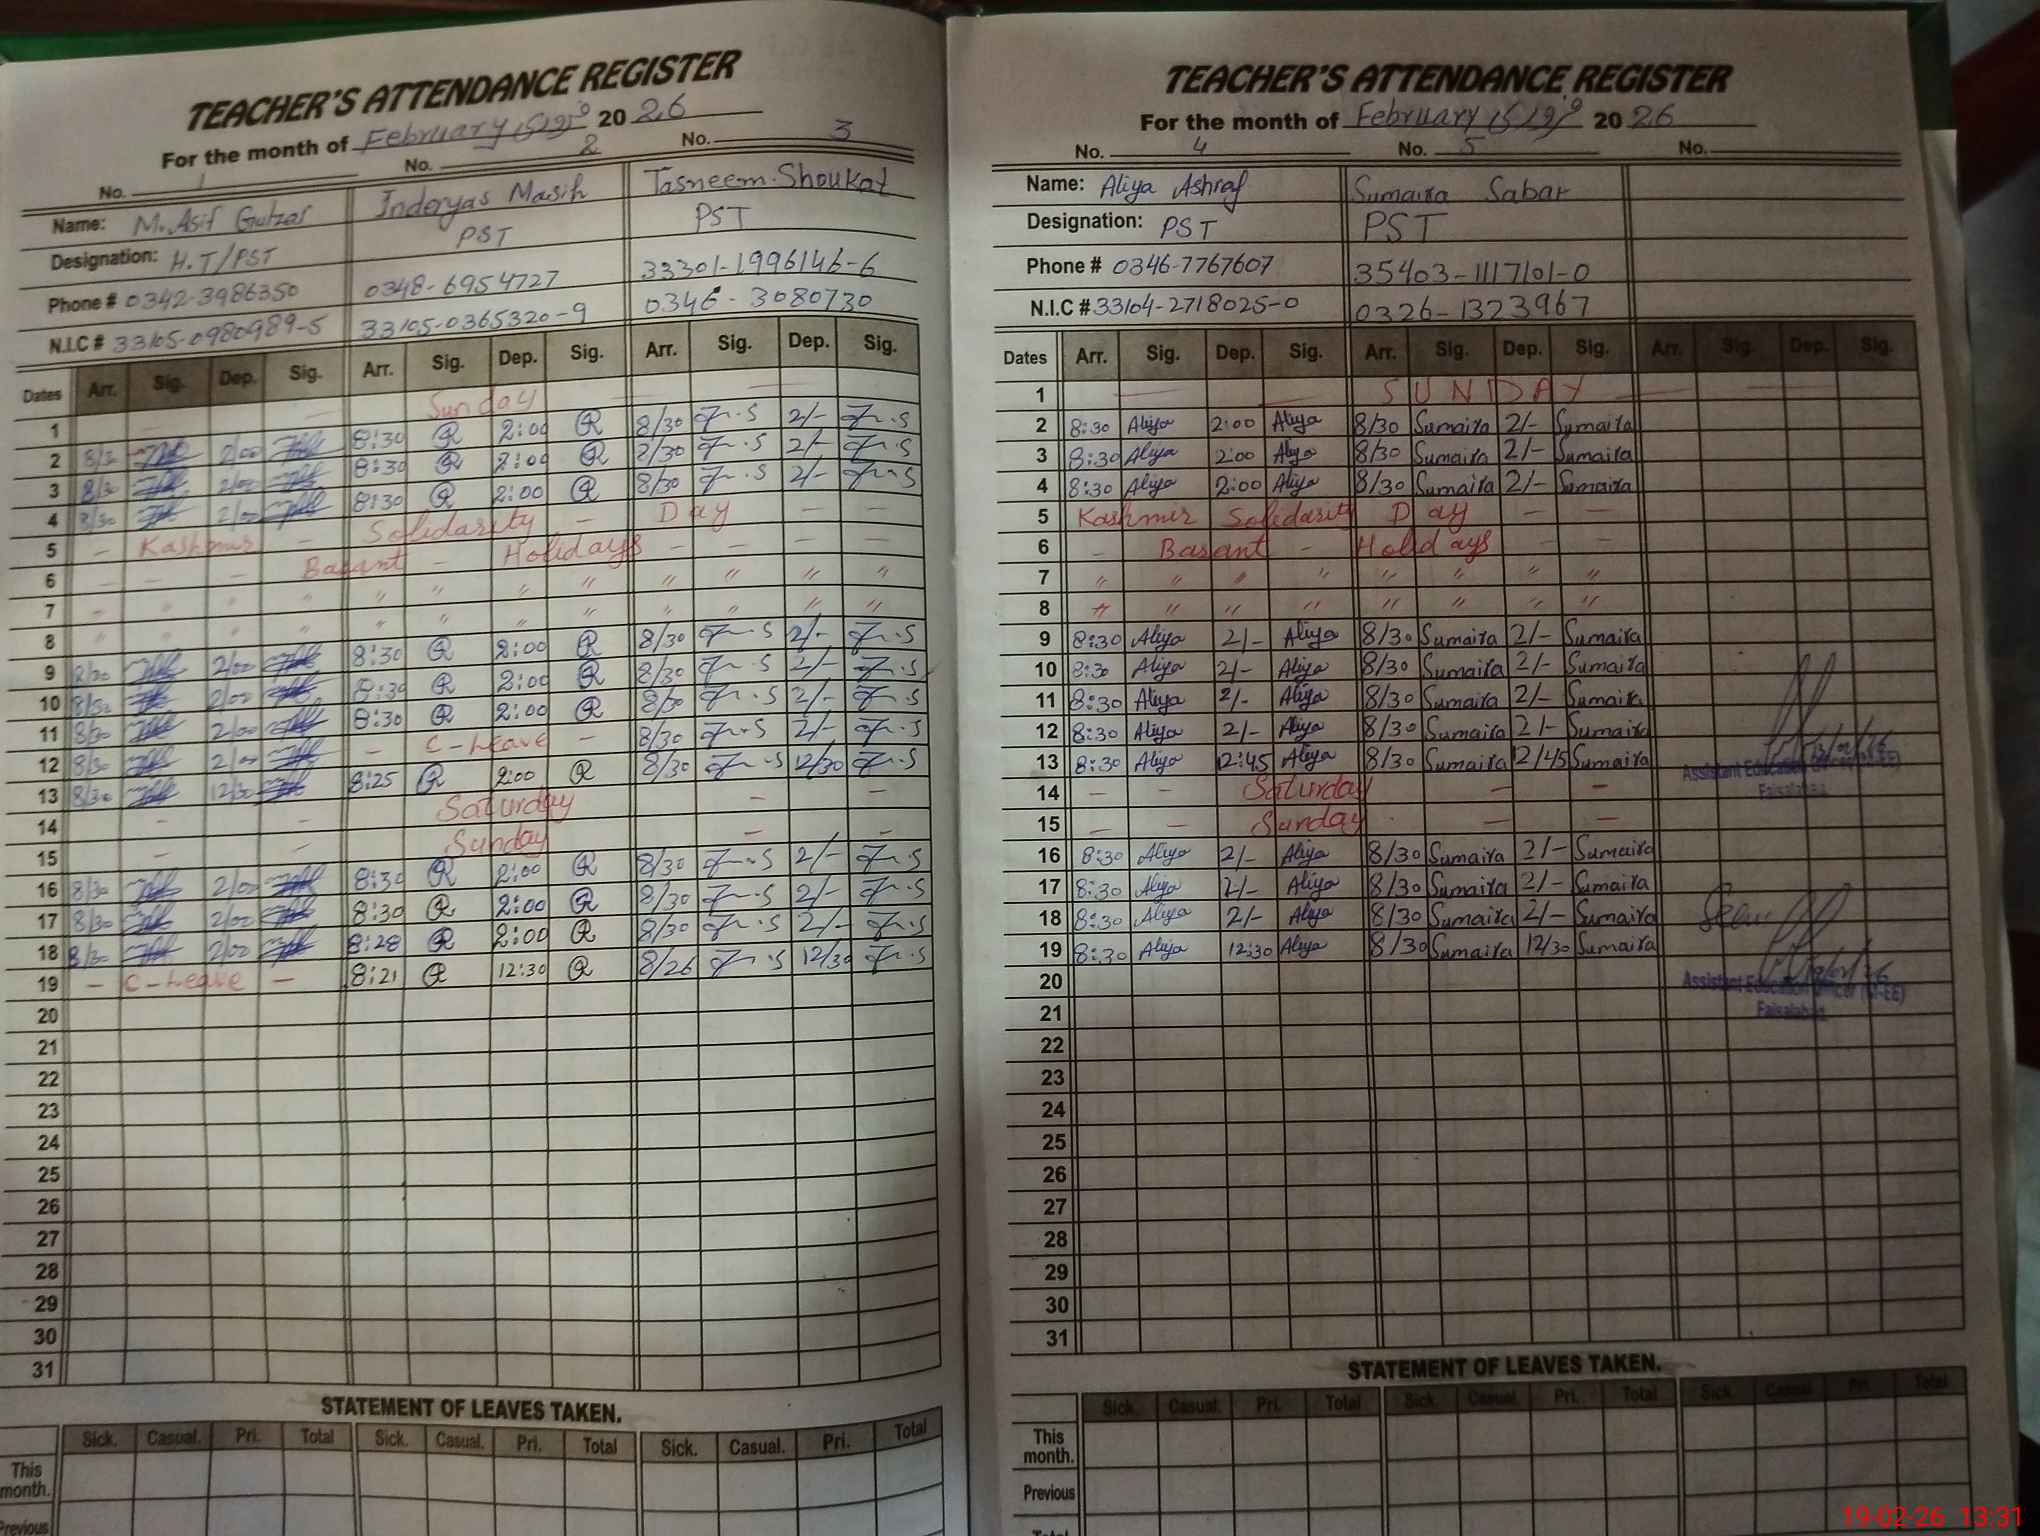 TEACHER'S ATTENDANCE REGISTER
For the month of February 2026
No. 1 No. 2 No. 3
Name: M. Asif Gulzar Inderyas Masih Tasneem Shoukat
Designation: H.T/PST PST PST
Phone # 0342-3986350 0348-6954727 33301-1996146-6
N.I.C # 33105-0980989-5 33105-0365320-9 0346-3080730
Dates Arr. Sig. Dep. Sig. Arr. Sig. Dep. Sig. Arr. Sig. Dep. Sig.
1 Sunday
2 8/30 2/00 8:30 R 2:00 R 8/30 2/-
3 8/30 2/00 8:30 R 2:00 R 8/30 2/-
4 8/30 2/00 8:30 R 2:00 R 8/30 2/-
5 - Kashmir - Solidarity - Day - -
6 - - - Basant - Holidays - - - -
7 - " " " " " " " " " " "
8 " " " " " " " " " " " "
9 8/30 2/00 8:30 R 2:00 R 8/30 2/-
10 8/30 2/00 8:30 R 2:00 R 8/30 2/-
11 8/30 2/00 8:30 R 2:00 R 8/30 2/-
12 8/30 2/00 - C-Leave - 8/30 2/-
13 8/30 12/30 8:25 R 2:00 R 8/30 12/30
14 - - Saturday - -
15 - - Sunday - -
16 8/30 2/00 8:30 R 2:00 R 8/30 2/-
17 8/30 2/00 8:30 R 2:00 R 8/30 2/-
18 8/30 2/00 8:28 R 2:00 R 8/30 2/-
19 - C-Leave - 8:21 R 12:30 R 8/26 12/30
20
21
22
23
24
25
26
27
28
29
30
31
STATEMENT OF LEAVES TAKEN.
Sick. Casual. Pri. Total Sick. Casual. Pri. Total Sick. Casual. Pri. Total
This month.
Previous
TEACHER'S ATTENDANCE REGISTER
For the month of February 2026
No. 4 No. 5 No.
Name: Aliya Ashraf Sumaira Sabar
Designation: PST PST
Phone # 0346-7767607 35403-1117101-0
N.I.C # 33104-2718025-0 0326-1323967
Dates Arr. Sig. Dep. Sig. Arr. Sig. Dep. Sig. Arr. Sig. Dep. Sig.
1 SUNDAY
2 8:30 Aliya 2:00 Aliya 8/30 Sumaira 2/- Sumaira
3 8:30 Aliya 2:00 Aliya 8/30 Sumaira 2/- Sumaira
4 8:30 Aliya 2:00 Aliya 8/30 Sumaira 2/- Sumaira
5 Kashmir Solidarity Day - -
6 - Basant - Holidays - -
7 " " " " " " " "
8 " " " " " " " "
9 8:30 Aliya 2/- Aliya 8/30 Sumaira 2/- Sumaira
10 8:30 Aliya 2/- Aliya 8/30 Sumaira 2/- Sumaira
11 8:30 Aliya 2/- Aliya 8/30 Sumaira 2/- Sumaira
12 8:30 Aliya 2/- Aliya 8/30 Sumaira 2/- Sumaira
13 8:30 Aliya 12:45 Aliya 8/30 Sumaira 12/45 Sumaira
Assistant Education Officer (M-EE)
Faisalabad
14 - - Saturday - -
15 - - Sunday - -
16 8:30 Aliya 2/- Aliya 8/30 Sumaira 2/- Sumaira
17 8:30 Aliya 2/- Aliya 8/30 Sumaira 2/- Sumaira
18 8:30 Aliya 2/- Aliya 8/30 Sumaira 2/- Sumaira
19 8:30 Aliya 12:30 Aliya 8/30 Sumaira 12/30 Sumaira
20
Assistant Education Officer (M-EE)
21
Faisalabad
22
23
24
25
26
27
28
29
30
31
STATEMENT OF LEAVES TAKEN.
Sick. Casual. Pri. Total Sick. Casual. Pri. Total Sick. Casual Pri. Total
This month.
Previous
Total
19-02-26 13:31